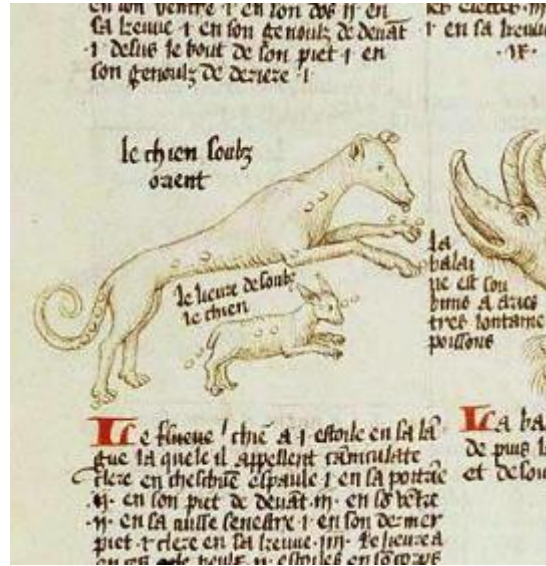 en son ventre ⁊ en son dos ij en
sa keuue ⁊ en son genoulz de deuāt
·ı delus le bout de son piet ⁊ en
son genoulz de deriere ·ı
⁊ en sa keuue
·ıx·
le chien soubz
orient
le lieure de soubz
le chien
la
balai
ne est sou
bins a aries
tres lontaine
poissons
Le flueue ⁊ chiē a ı estoile en sa lā
gue la quele il appellent caniculate
clere en cheschūe espaule ı en sa poitrīe
·ij· en son piet de deuāt ·iij· en sō vētre
·ij· en sa senestre ı en son dermer
piet ·ı clere en sa keuue ·iiij· le lieure a
La ba
de puis l
et desou